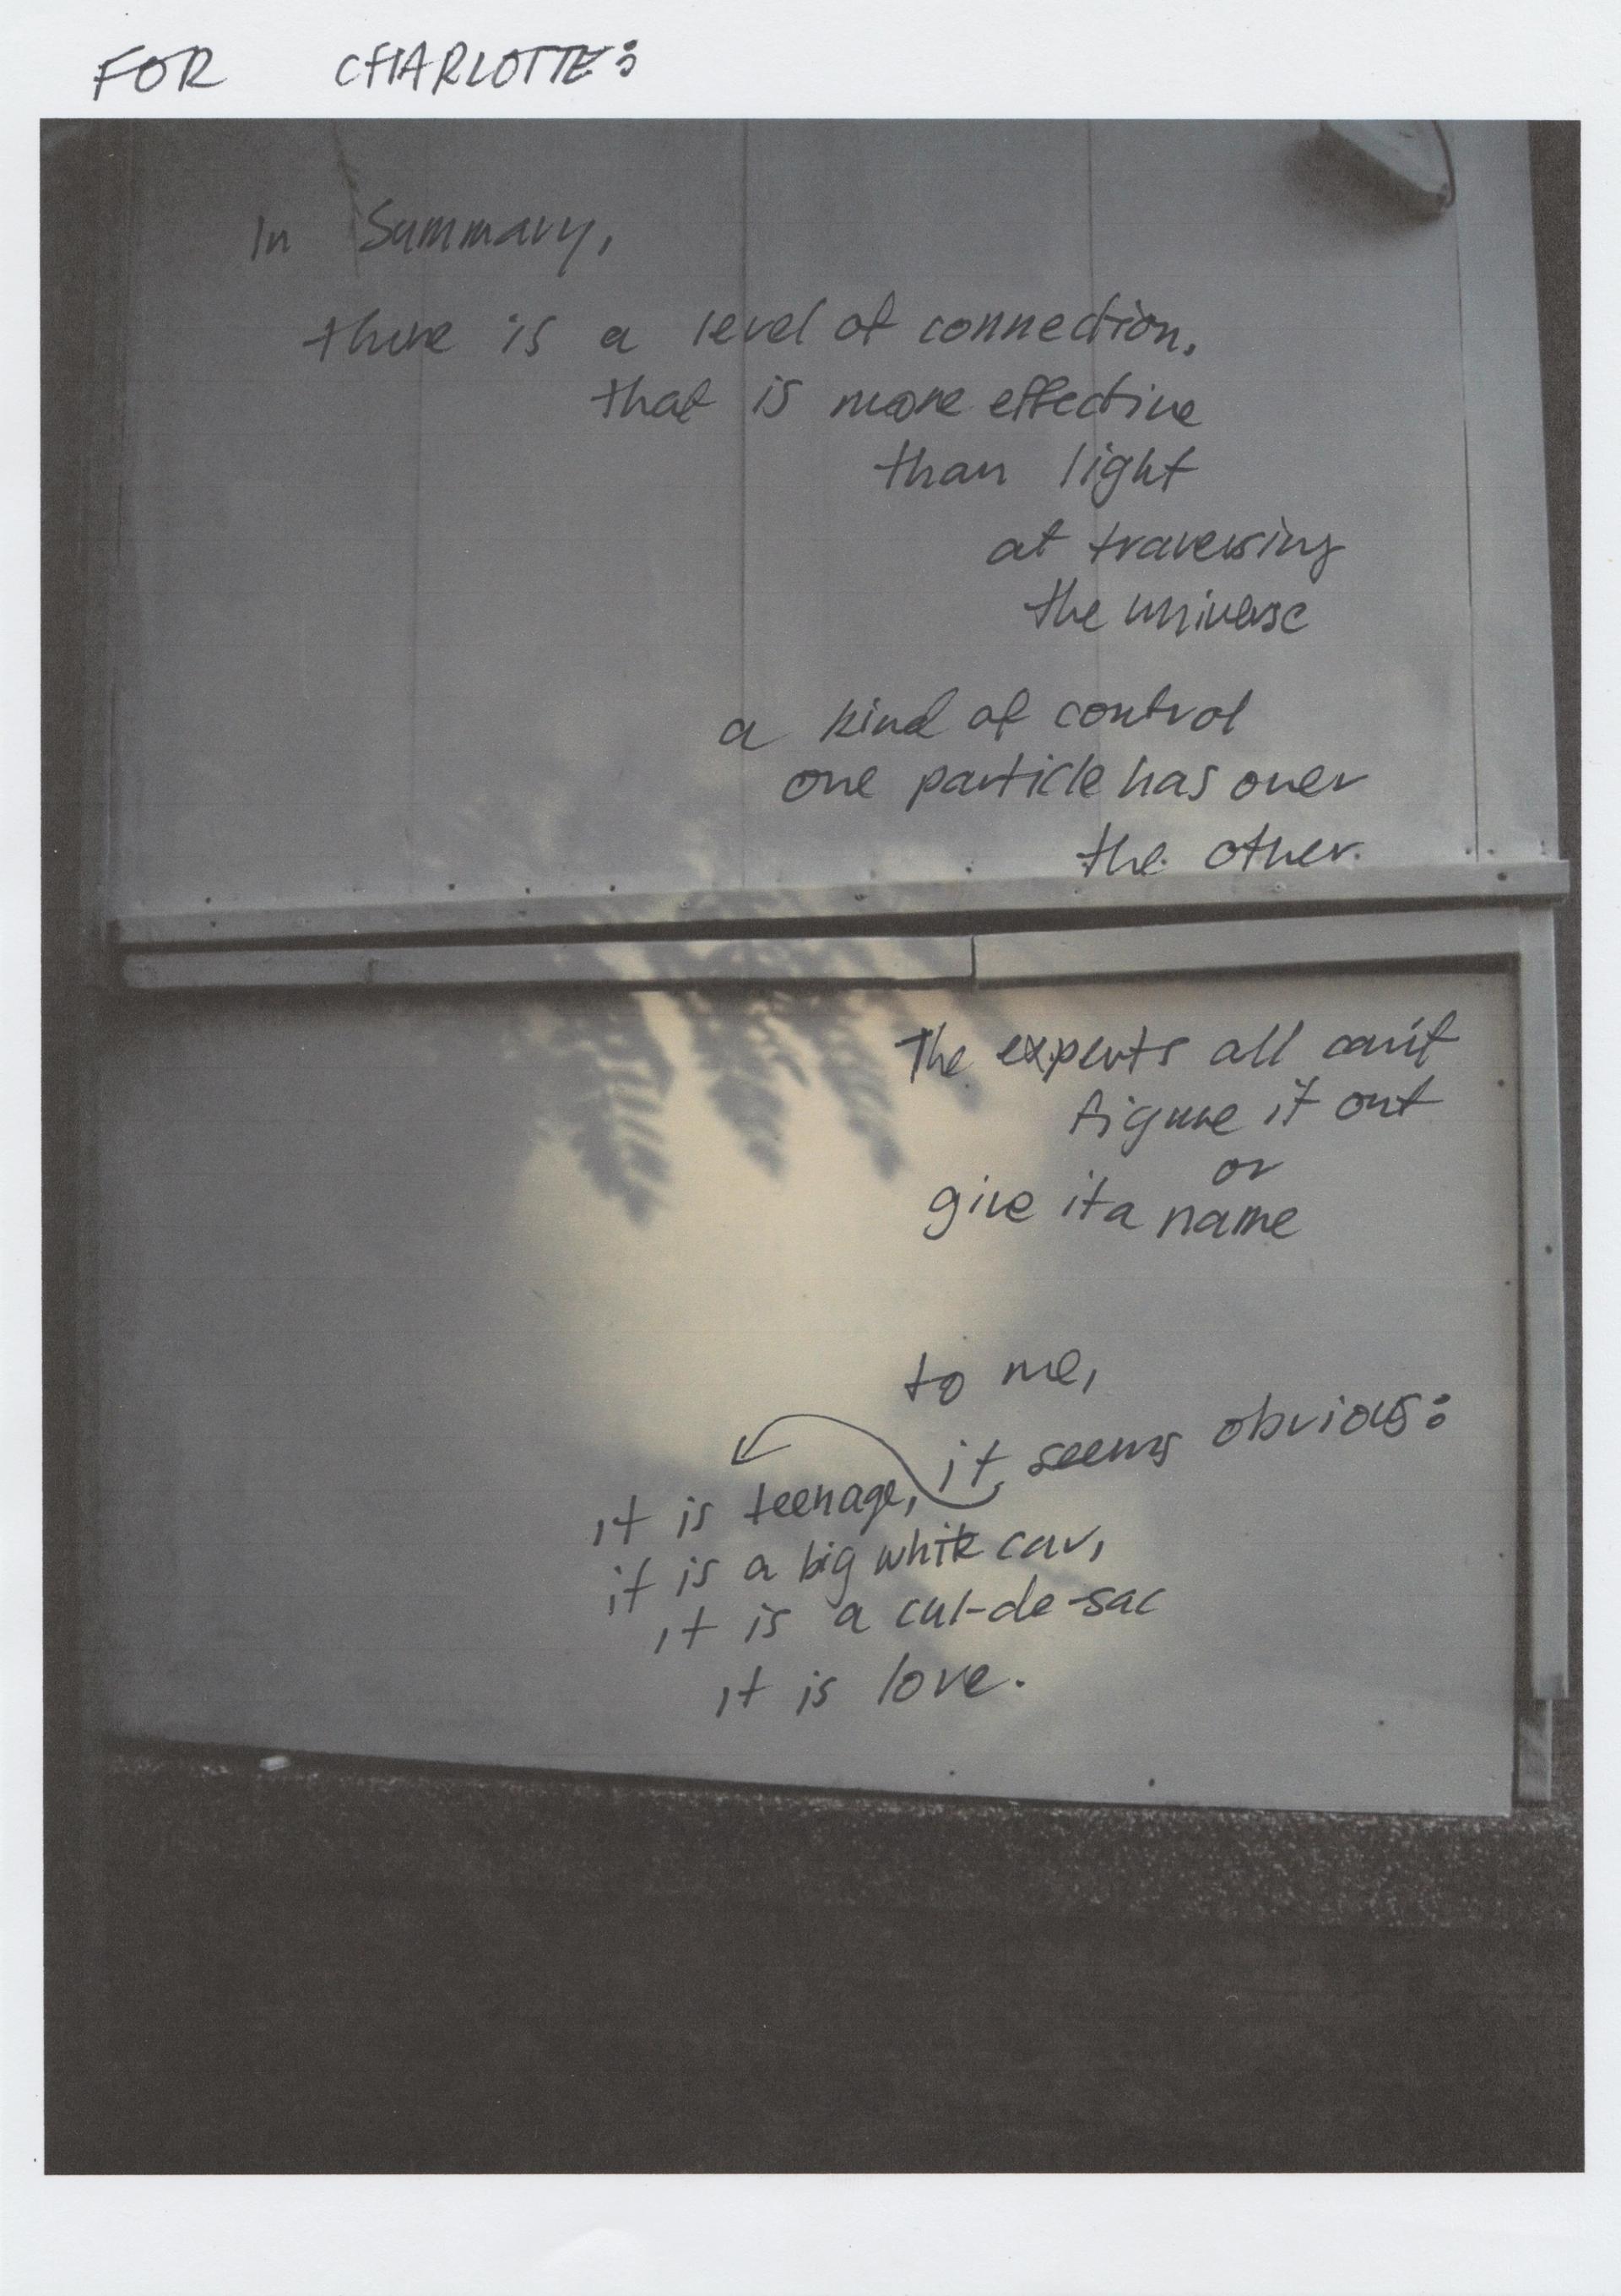 FOR CHARLOTTE:
In Summary,
there is a level of connection,
that is more effective
than light
at traversing
the universe
a kind of control
one particle has over
the other.
The experts all can't
figure it out
or
give it a name
to me,
it seems obvious:
it is teenage,
it is a big white car,
it is a cul-de-sac
it is love.